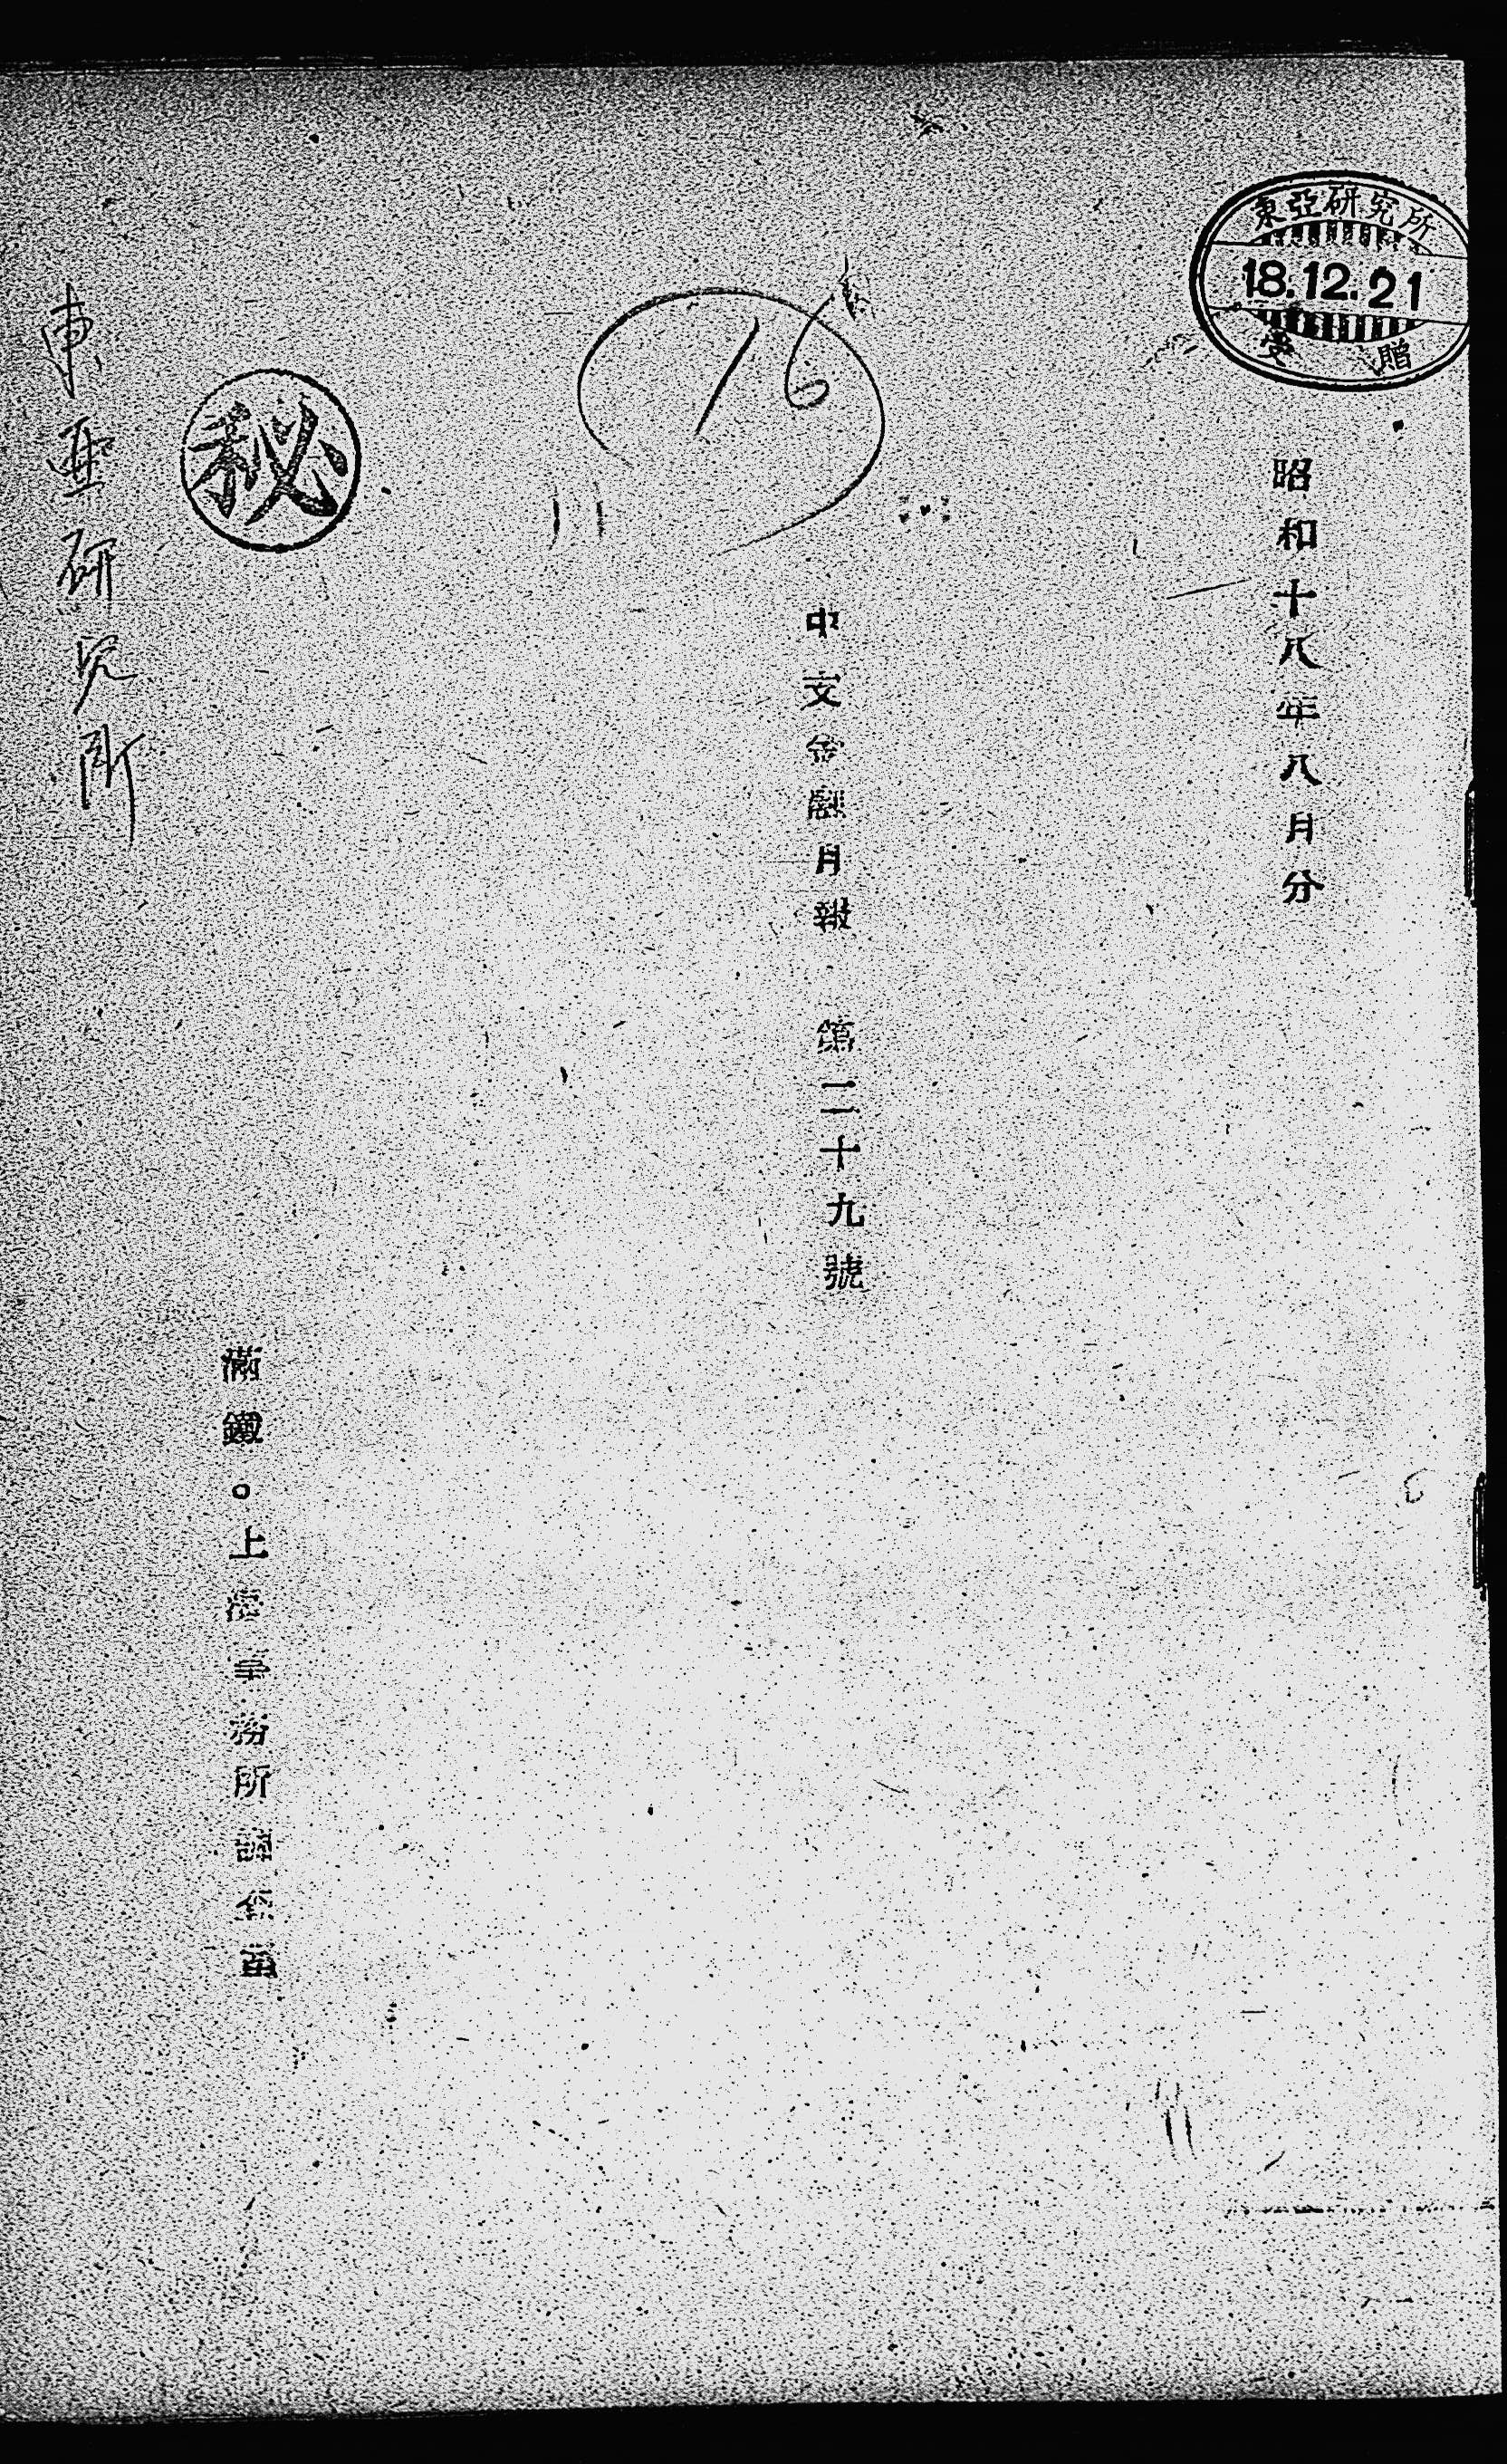 東亞研究所
18.12.21
受贈
昭和十八年八月分
16
中支金融月報 第二十九號
秘
滿鐵。上海事務所調査室
東亜研究所